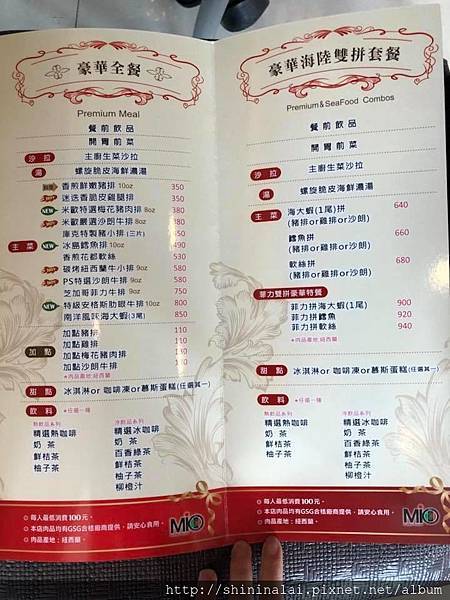 豪華全餐
Premium Meal
餐前飲品
開胃前菜
沙拉 主廚生菜沙拉
湯 螺旋脆皮海鮮濃湯
主菜
香煎鮮嫩豬排 10oz 350
迷迭香脆皮雞腿排 350
NEW 米歐特選梅花豬肉排 8oz 380
米歐嚴選沙朗牛排 8oz 380
庫克特製豬小排 (三片) 450
NEW 冰島鱈魚排 10oz 490
香煎花都軟絲 530
碳烤紐西蘭牛小排 9oz 590
PS特選沙朗牛排 9oz 580
芝加哥菲力牛排 9oz 750
NEW 特級安格斯肋眼牛排 10oz 800
南洋風味海大蝦(3尾) 850
加點
加點豬排 110
加點雞排 110
加點梅花豬肉排
加點沙朗牛排
*肉品產地:紐西蘭
甜點 冰淇淋or 咖啡凍or慕斯蛋糕(任選其一)
飲料 *任選一種
熱飲品系列 冷飲品系列
精選熱咖啡 精選冰咖啡
奶 茶 奶 茶
鮮桔茶 百香綠茶
柚子茶 鮮桔茶
柚子茶
柳橙汁
◎每人最低消費100元。
◎本店肉品均有GSG合格廠商提供，請安心食用。
◎肉品產地：紐西蘭。
MiO
豪華海陸雙拼套餐
Premium&SeaFood Combos
餐前飲品
開胃前菜
沙拉 主廚生菜沙拉
湯 螺旋脆皮海鮮濃湯
主菜 海大蝦(1尾)拼 640
(豬排or雞排or沙朗)
鱈魚拼 660
(豬排or雞排or沙朗)
軟絲拼 680
(豬排or雞排or沙朗)
菲力雙拼豪華特餐
菲力拼海大蝦(1尾) 900
菲力拼鱈魚 920
菲力拼軟絲 940
*肉品產地:紐西蘭
甜點 冰淇淋or 咖啡凍or慕斯蛋糕(任選其一)
飲料 *任選一種
熱飲品系列 冷飲品系列
精選熱咖啡 精選冰咖啡
奶 茶 奶 茶
鮮桔茶 百香綠茶
柚子茶 鮮桔茶
柚子茶
柳橙汁
◎每人最低消費100元。
◎本店肉品均有GSG合格廠商提供，請安心食用。
◎肉品產地：紐西蘭。
MiO
http://shininalai.pixnet.net/album